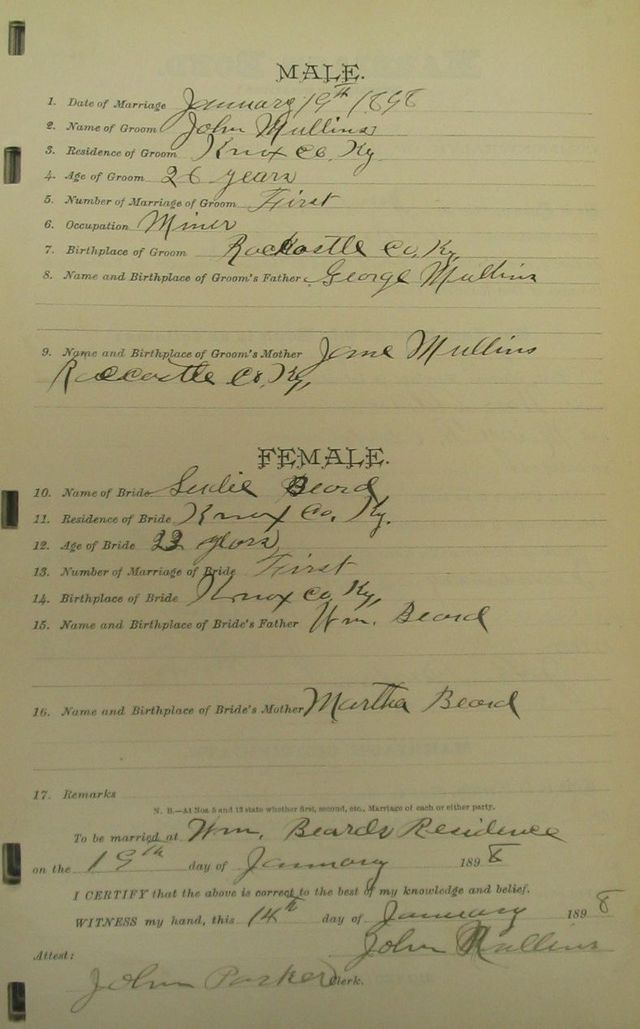 MALE.
1. Date of Marriage January 19th 1898
2. Name of Groom John Mullins
3. Residence of Groom Knox Co. Ky
4. Age of Groom 26 years
5. Number of Marriage of Groom First
6. Occupation Miner
7. Birthplace of Groom Rockcastle Co. Ky.
8. Name and Birthplace of Groom's Father George Mullins
9. Name and Birthplace of Groom's Mother Jane Mullins
Rockcastle Co. Ky,
FEMALE.
10. Name of Bride Sudie Beard
11. Residence of Bride Knox Co. Ky.
12. Age of Bride 22 years
13. Number of Marriage of Bride First
14. Birthplace of Bride Knox Co Ky,
15. Name and Birthplace of Bride's Father Wm. Beard
16. Name and Birthplace of Bride's Mother Martha Beard
17. Remarks
N. B.—At Nos. 5 and 13 state whether first, second, etc., Marriage of each or either party.
To be married at Wm. Beards Residence
on the 19th day of January 1898
I CERTIFY that the above is correct to the best of my knowledge and belief.
WITNESS my hand, this 14th day of January 1898
John Mullins
Attest:
John Parker Clerk.